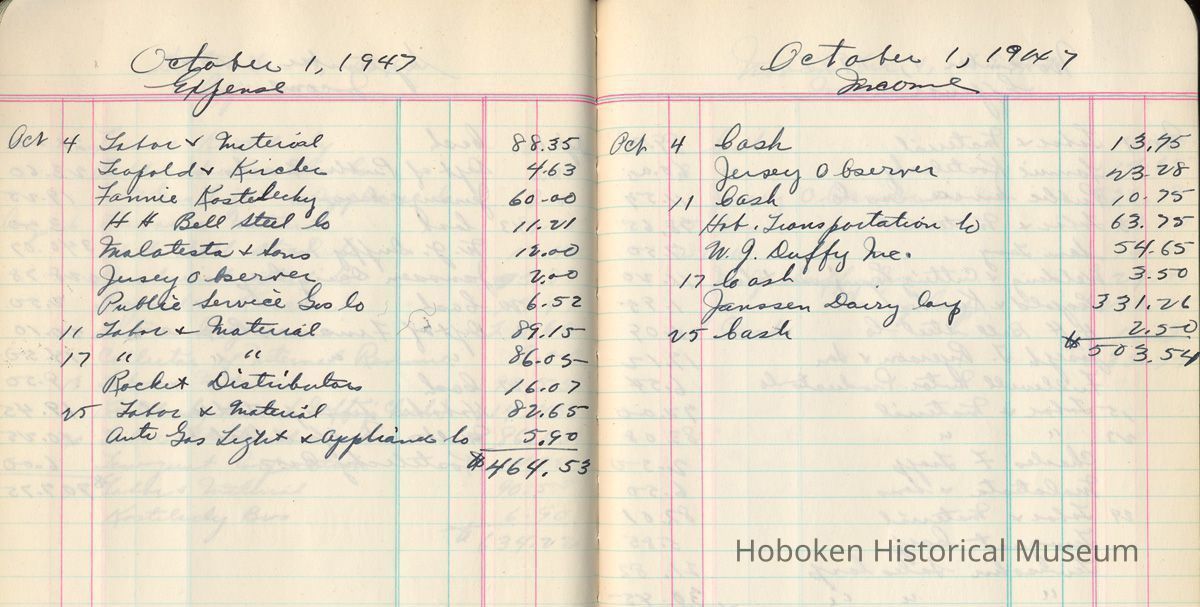 October 1, 1947
Expense
Oct 4 Labor & Material 88.35
Leopold & Kircher 4.63
Fannie Kostelecky 60.00
H H Bell Steel Co 11.21
Malatesta & Sons 12.00
Jersey Observer 2.00
Public Service Gas Co 6.52
11 Labor & Material 89.15
17 " " 86.05
Rocket Distributors 16.07
25 Labor & Material 82.65
Auto Gas Light & Appliance Co 5.90
$464.53
October 1, 1947
Income
Oct 4 Cash 13.75
Jersey Observer 23.28
11 Cash 10.75
Hob. Transportation Co 63.75
W. J. Duffy Inc. 54.65
17 Cash 3.50
Janssen Dairy Corp 331.26
25 Cash 2.50
$503.54
Hoboken Historical Museum